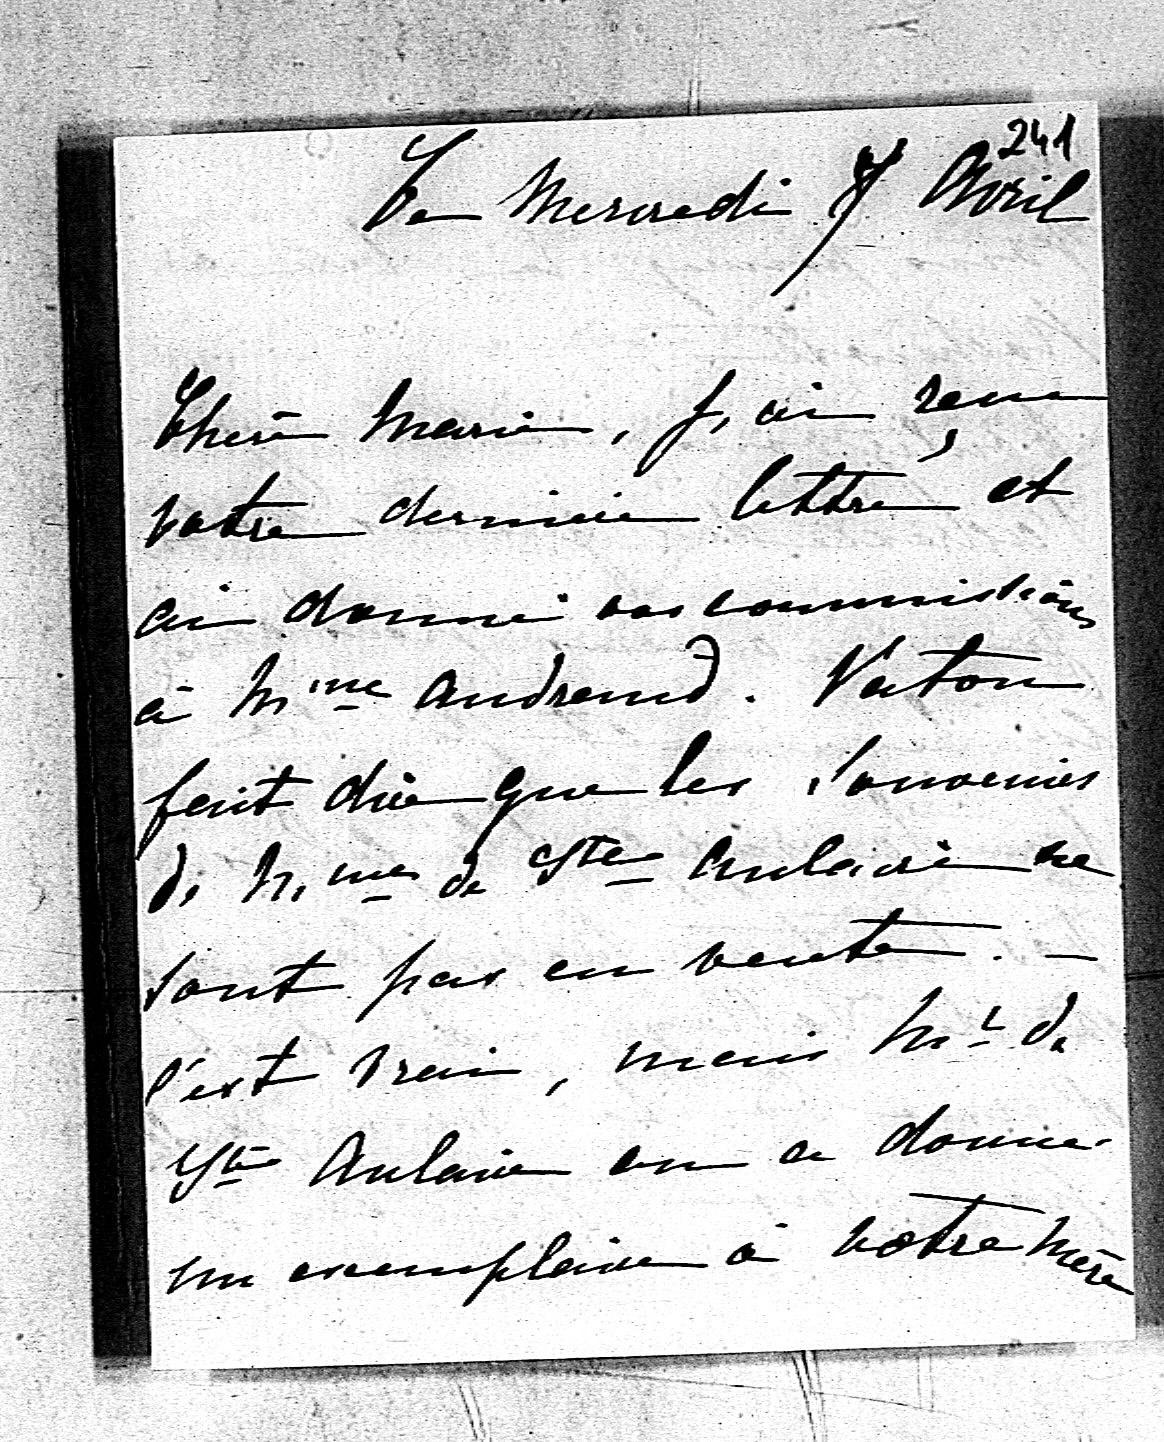 241
Le Mercredi 7 Avril
Chère Marie, j'ai reçu
votre dernière lettre et
ai donné vos commissions
à Mme Andraud. Vaton
fait dire que les Souvenirs
de Mme de Ste Aulaire ne
sont pas en vente. —
C'est vrai, mais Mr de
Ste Aulaire en a donné
un exemplaire à votre mère